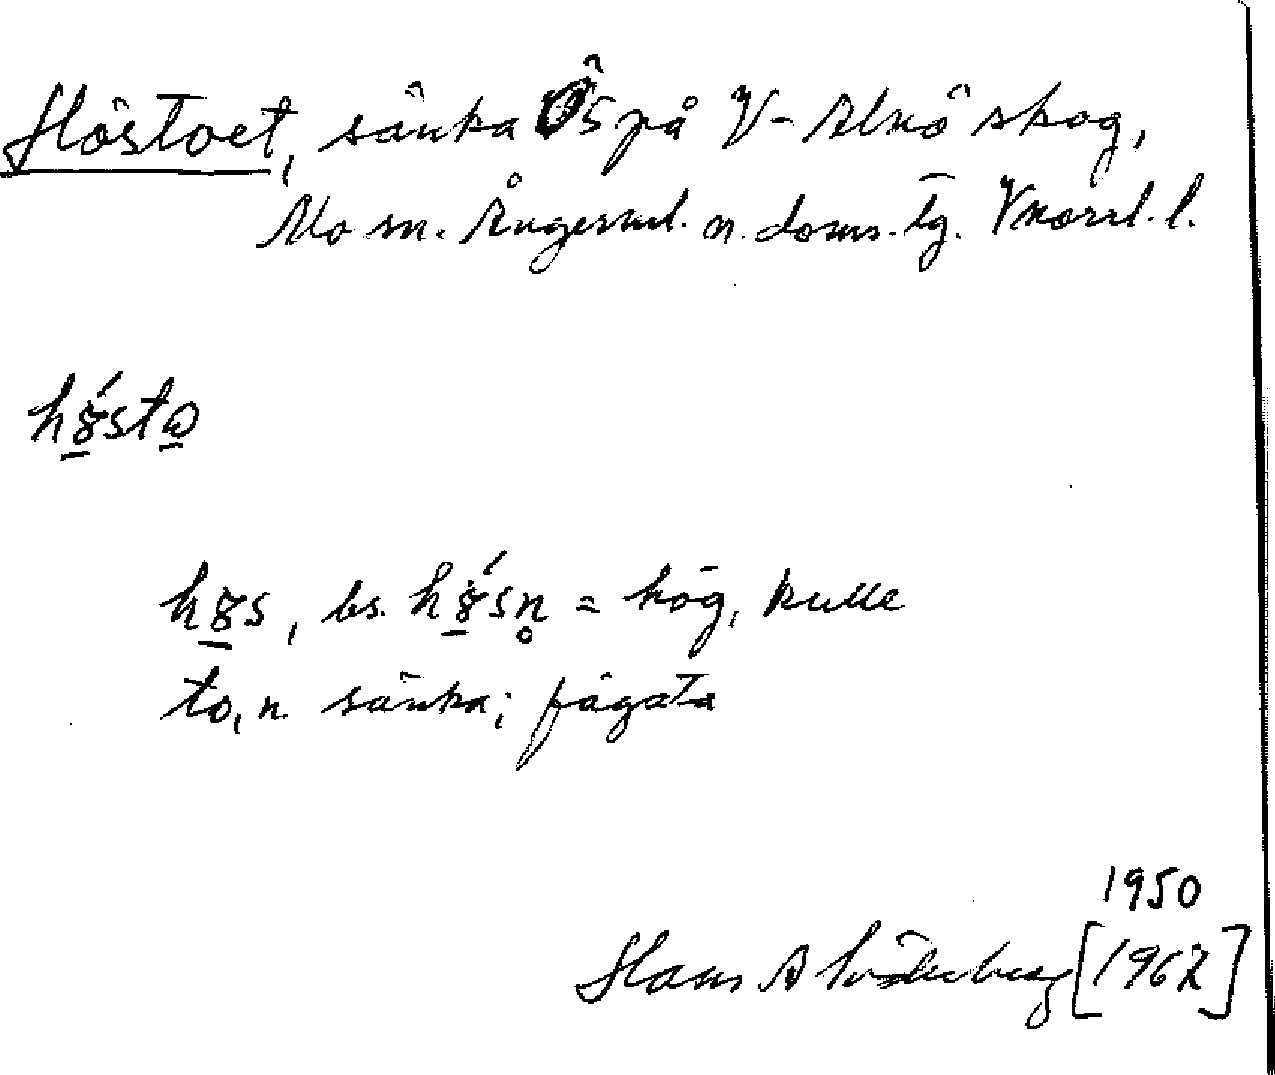 Höstoet, sänka Ö S på V-Alnö skog,
Mo sn. Ångerml. n. doms. tg. Vnorrl. l.
hö́sto
hös, bs. hö́sn̥ = hög, kulle
to, n. sänka; fågata
1950
Hans A Söderberg [1962]